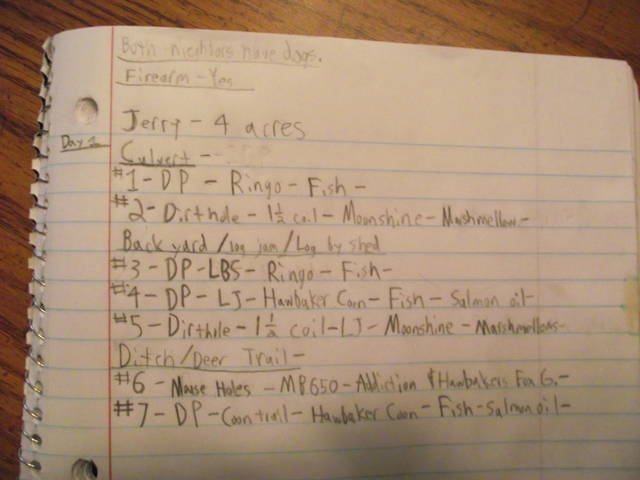 Both nieghbors have dogs.
Firearm - Yes
Jerry - 4 acres
Day 1
Culvert -
#1 - DP - Ringo - Fish -
#2 - Dirthole - 1½ coil - Moonshine - Marshmellow -
Back yard / log jam / Log by shed
#3 - DP - LBS - Ringo - Fish -
#4 - DP - LJ - Hawbaker Coon - Fish - Salmon oil -
#5 - Dirthole - 1½ coil - LJ - Moonshine - Marshmellows -
Ditch / Deer Trail -
#6 - Mouse Holes - MB650 - Addiction & Hawbakers Fox G. -
#7 - DP - Coon trail - Hawbaker Coon - Fish - Salmon oil -